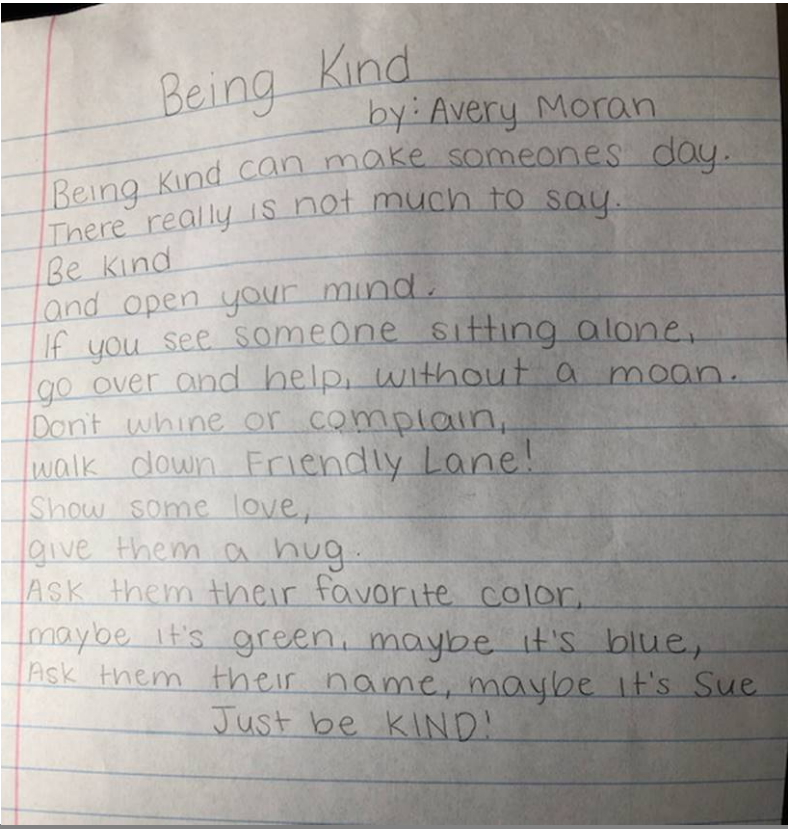 Being Kind
by: Avery Moran
Being Kind can make someones day.
There really is not much to say.
Be kind
and open your mind.
If you see someone sitting alone,
go over and help, without a moan.
Don't whine or complain,
walk down Friendly Lane!
Show some love,
give them a hug.
Ask them their favorite color,
maybe it's green, maybe it's blue,
Ask them their name, maybe it's Sue
Just be KIND!